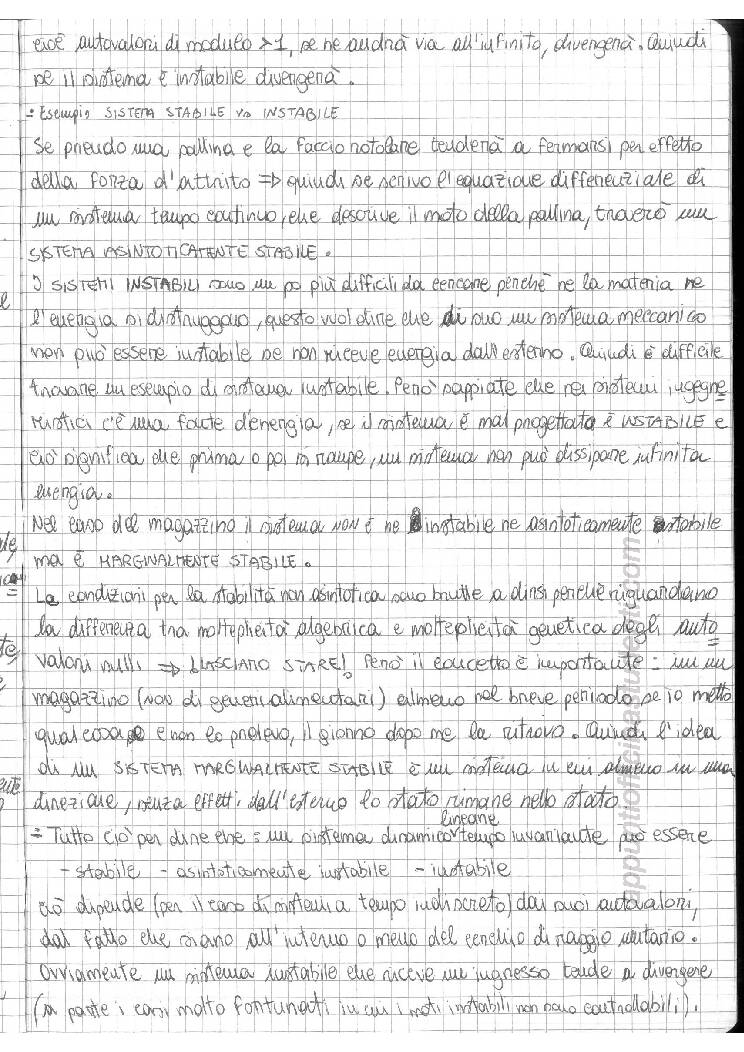 cioè autovalori di modulo >1, se ne andrà via all'infinito, divergerà. Quindi
se il sistema è instabile divergerà.
÷ Esempio SISTEMA STABILE vs INSTABILE
Se prendo una pallina e la faccio rotolare tenderà a fermarsi per effetto
della forza d'attrito => quindi se scrivo l'equazione differenziale di
un sistema tempo continuo, che descrive il moto della pallina, troverò un
SISTEMA ASINTOTICAMENTE STABILE.
I SISTEMI INSTABILI sono un po più difficili da cercare perchè ne la materia ne
l'energia si distruggono, questo vuol dire che di suo un sistema meccanico
non può essere instabile se non riceve energia dall'esterno. Quindi è difficile
trovare un esempio di sistema instabile. Però sappiate che nei sistemi ingegne
ristici c'è una fonte d'energia, se il sistema è mal progettato è INSTABILE e
ciò significa che prima o poi si rompe, un sistema non può dissipare infinita
energia.
Nel caso del magazzino il sistema NON è ne instabile ne asintoticamente stabile
ma è MARGINALMENTE STABILE.
Le condizioni per la stabilità non asintotica sono brutte a dirsi perchè riguardano
la differenza tra molteplicità algebrica e molteplicità genetica degli auto
valori nulli => LASCIAMO STARE! Però il concetto è importante: in un
magazzino (non di generi alimentari) almeno nel breve periodo se io metto
qualcosa e non lo prelevo, il giorno dopo me la ritrovo. Quindi l'idea
di un SISTEMA MARGINALMENTE STABILE è un sistema in cui almeno in una
direzione, senza effetti dall'esterno lo stato rimane nello stato
lineare
÷ Tutto ciò per dire che: un sistema dinamico tempo invariante può essere
- stabile - asintoticamente instabile - instabile
ciò dipende (per il caso di sistemi a tempo indiscreto) dai suoi autovalori,
dal fatto che siano all'interno o meno del cerchio di raggio unitario.
Ovviamente un sistema instabile che riceve un ingresso tende a divergere
(a parte i casi molto fortunati in cui i moti instabili non sono controllabili).
appuntiofficinastudenti.com